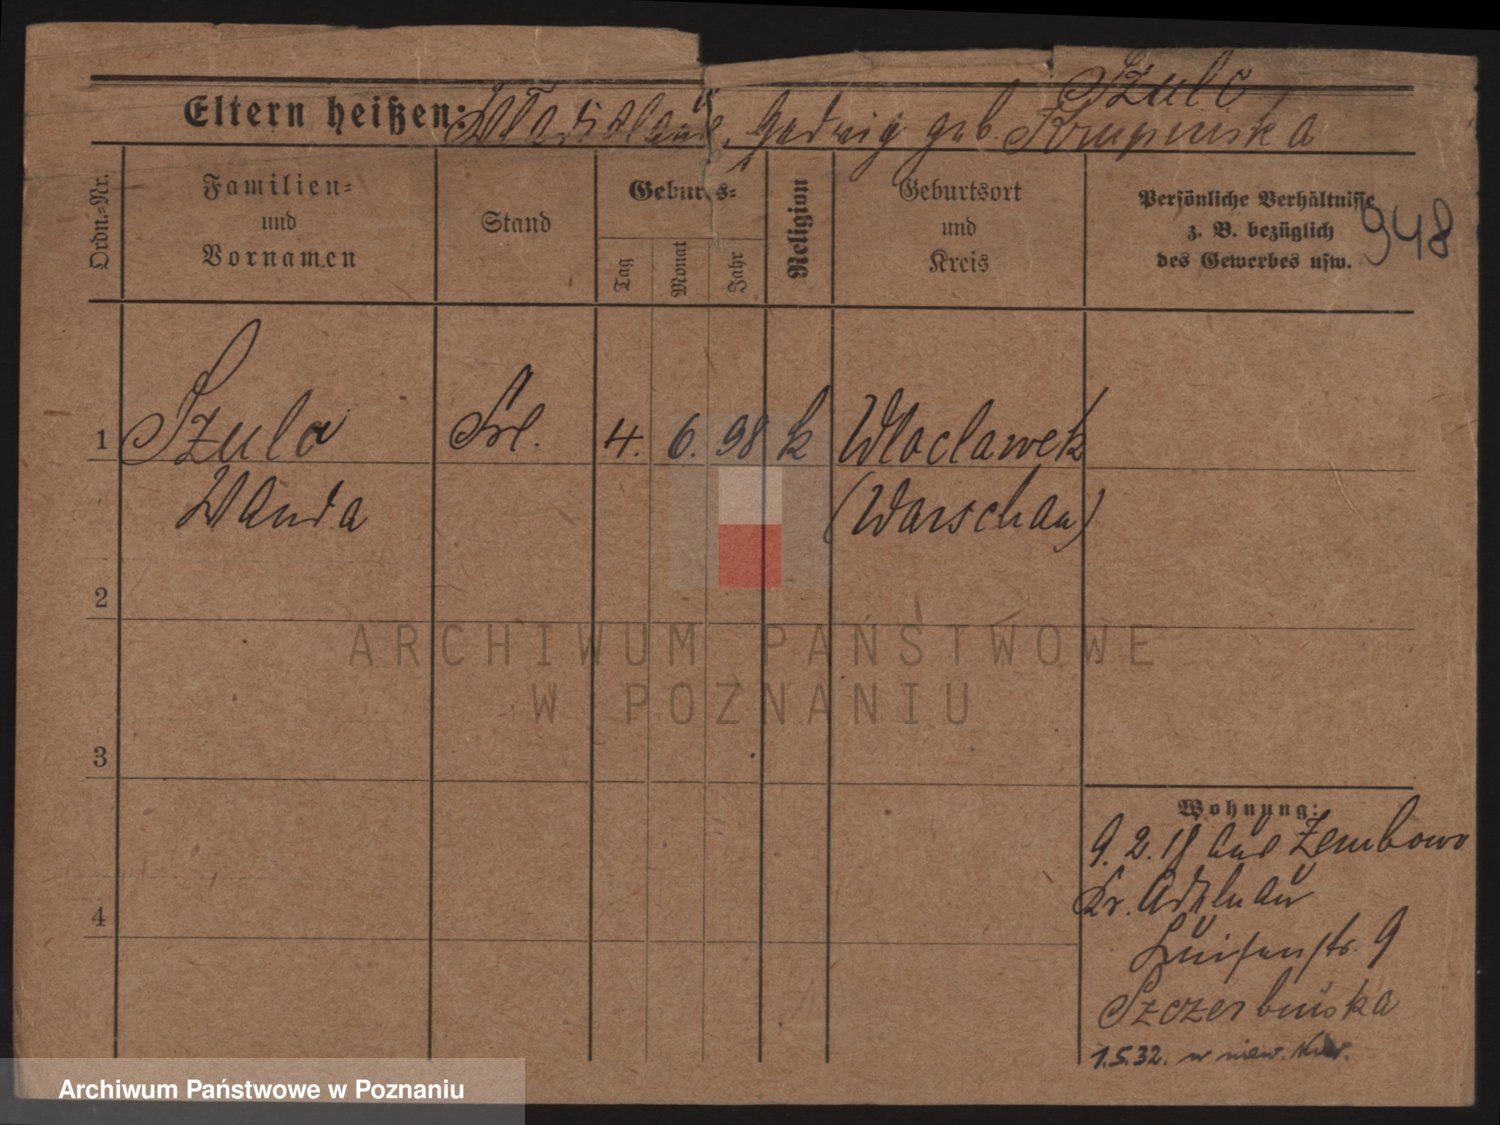 Szulc
Eltern heißen: Wladislaus, Hedwig geb. Krupinska
Ordn.=Nr.
Familien=
und
Vornamen
Stand
Geburts=
Tag
Monat
Jahr
Religion
Geburtsort
und
Kreis
Persönliche Verhältnisse
z. B. bezüglich
des Gewerbes usw.
948
1 Szulc Frl. 4. 6. 98 k Wloclawek
Wanda (Warschau)
2
3
4
Wohnung:
9. 2. 18 aus Zembowo
Kr. Adelnau
Luisenstr. 9
Szczerbinska
1.5.32. w niew.
ARCHIWUM PAŃSTWOWE
W POZNANIU
Archiwum Państwowe w Poznaniu